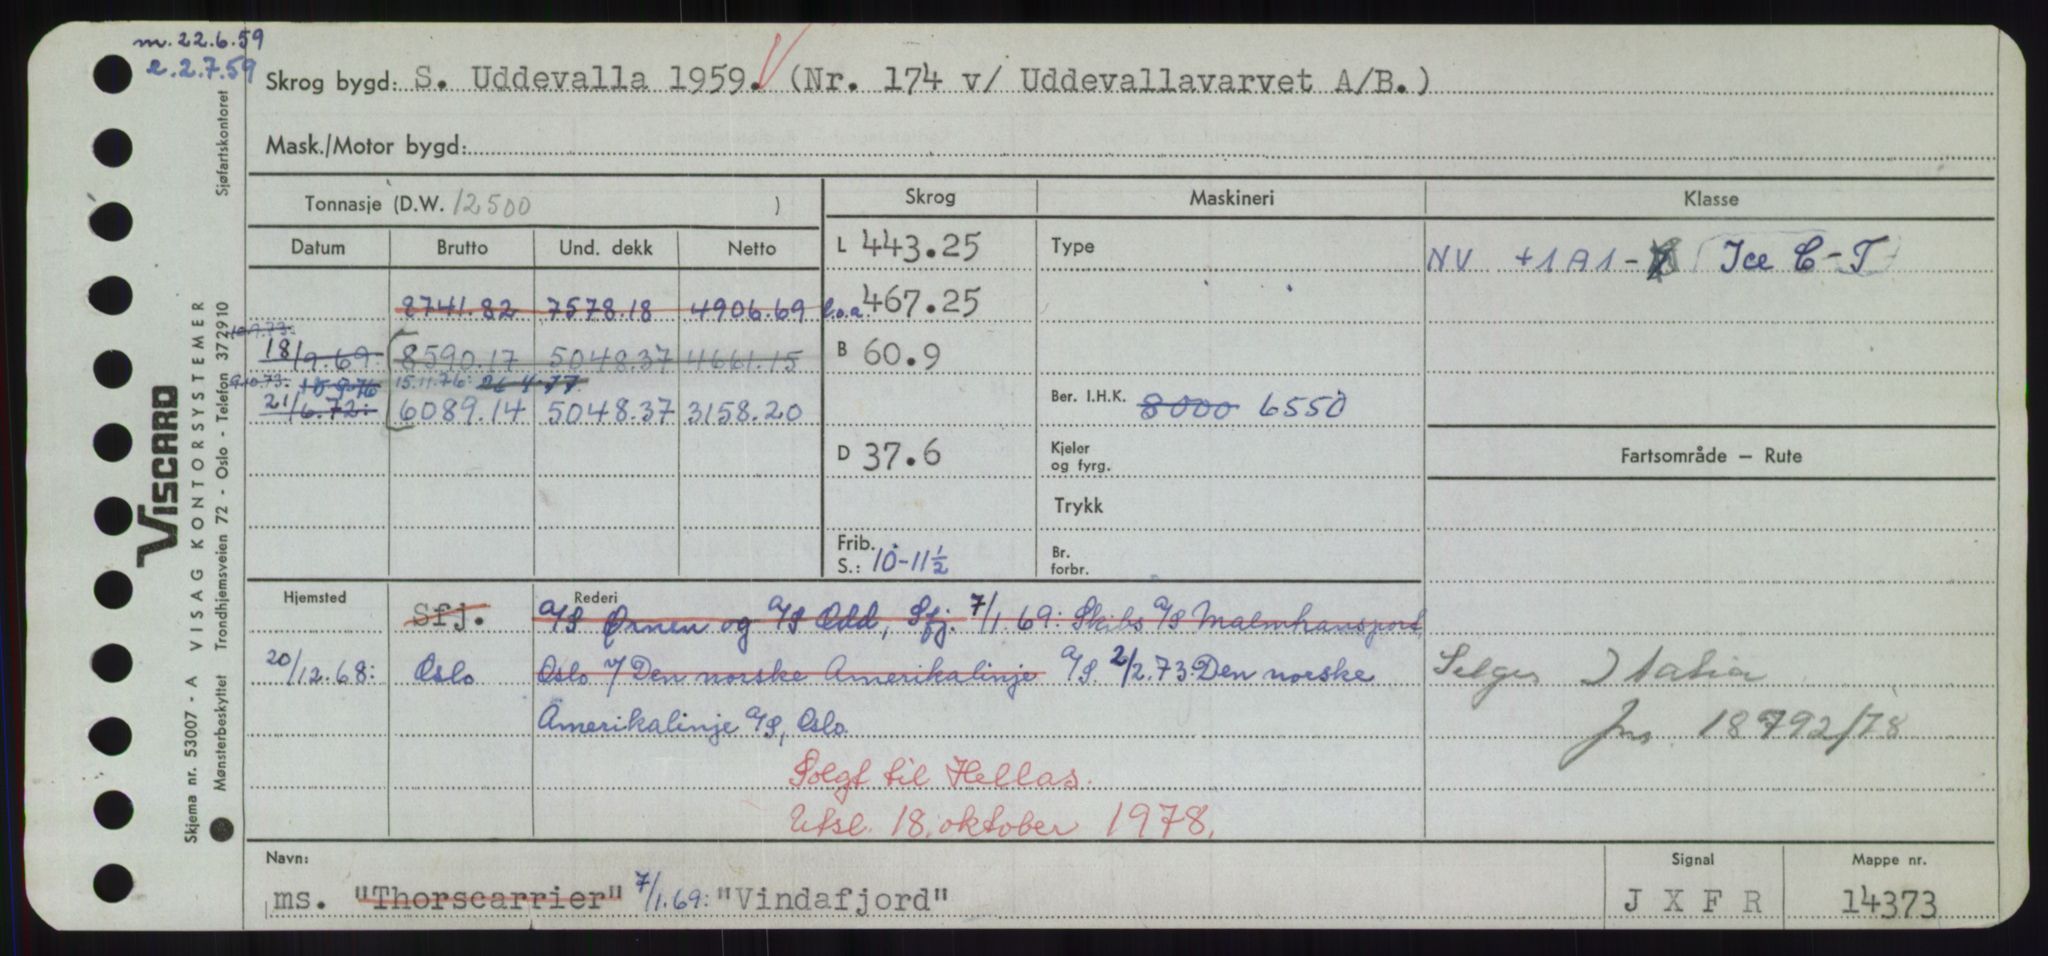 m. 22.6.59
e. 2.7.59
Skrog bygd: S. Uddevalla 1959. (Nr. 174 v/ Uddevallavarvet A/B.)
Mask./Motor bygd:
Tonnasje (D.W. 12500 )
Datum Brutto Und. dekk Netto
8741.82 7578.18 4906.69
18/9.69. 8590.17 5048.37 4661.15
15.11.76: 26.4.77
21/6.72: 6089.14 5048.37 3158.20
Skrog
L 443.25
l.o.a. 467.25
B 60.9
D 37.6
Frib.
S.: 10-11½
Maskineri
Type
Ber. I.H.K. 8000 6550
Kjeler
og fyrg.
Trykk
Br.
forbr.
Klasse
NV +1A1- Ice C-T
Fartsområde — Rute
Selges Italia
Jnr. 18792/78
Hjemsted Rederi
Sfj. A/S Ørnen og A/S Odd, Sfj. 7/1.69: Skibs A/S Malmtransport
20/12.68: Oslo Oslo v/ Den norske Amerikalinje A/S. 2/2.73: Den norske
Amerikalinje A/S, Oslo.
Solgt til Hellas.
Utsl. 18. oktober 1978.
Navn:
ms. "Thorscarrier" 7/1.69: "Vindafjord"
Signal
J X F R
Mappe nr.
14373
VISCARD
Skjema nr. 53007 - A VISAG KONTORSYSTEMER
Mønsterbeskyttet Trondhjemsveien 72 - Oslo - Telefon 372910 Sjøfartskontoret